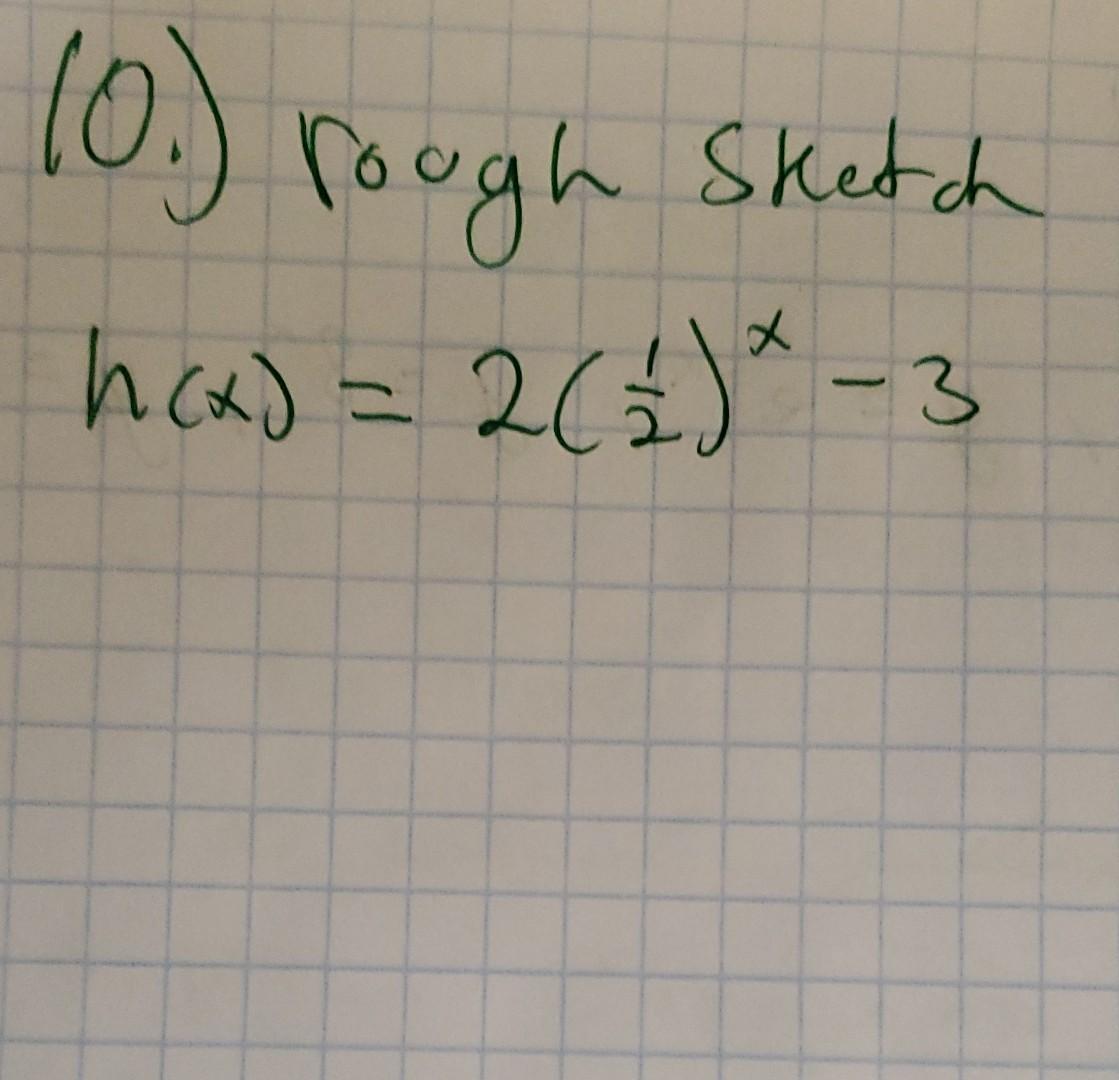 10.) rough sketch
h(x) = 2(1/2)^x - 3